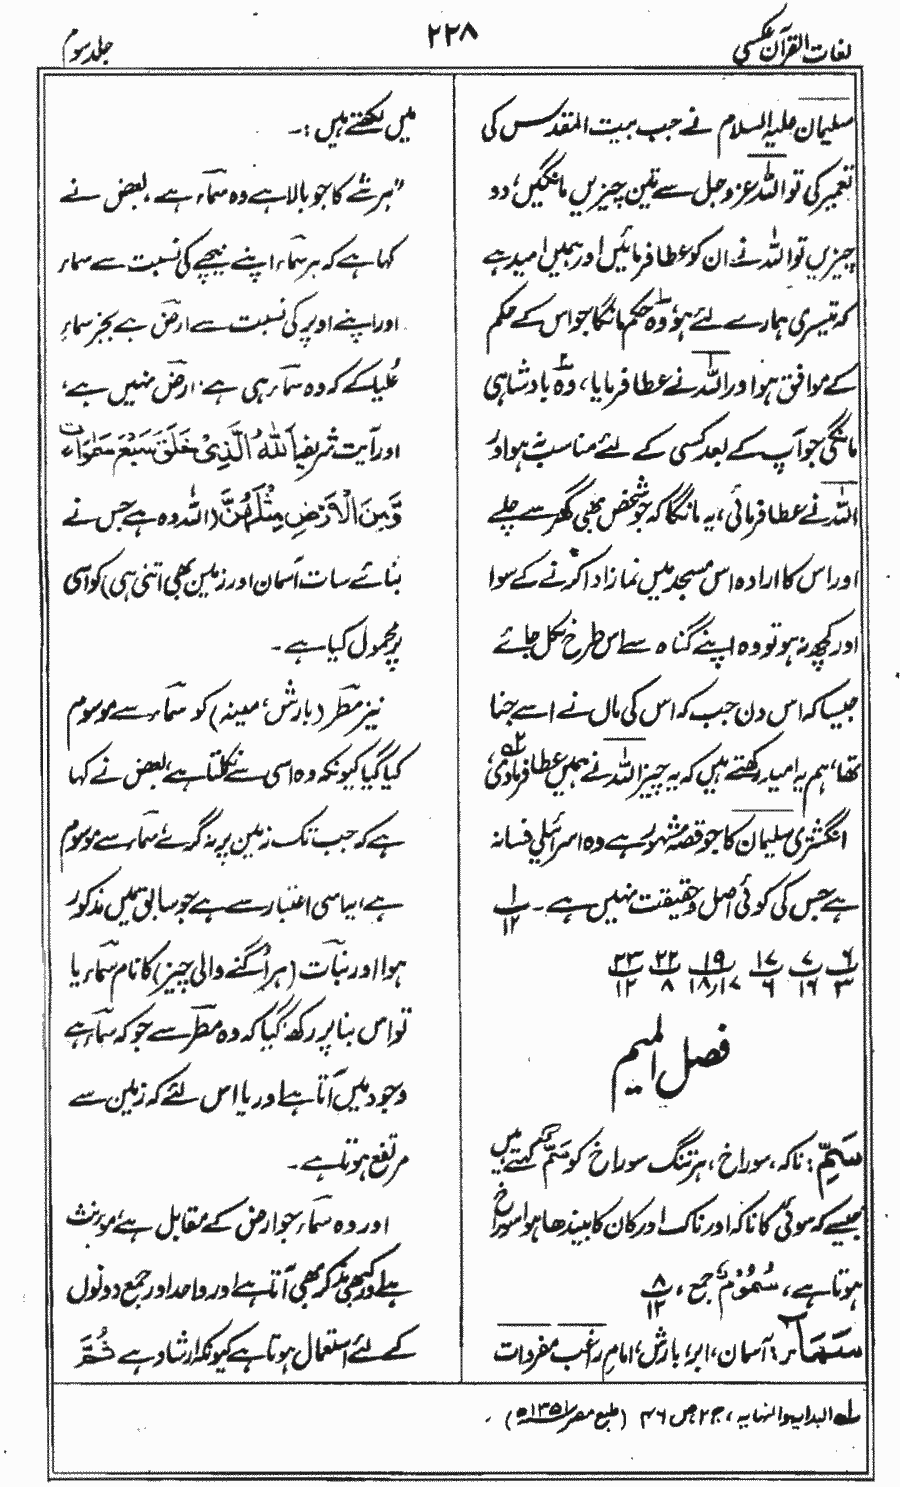 لغات القرآن عکسی
۲۲۸
جلد سوم
سلیمان علیہ السلام نے جب بیت المقدس کی
تعمیر کی تو اللہ عزوجل سے تین چیزیں مانگیں، دو
چیزیں تو اللہ نے ان کو عطا فرمائیں اور ہمیں امید ہے
کہ تیسری ہمارے لئے ہو، وہ حکم مانگا جو اس کے حکم
کے موافق ہو اور اللہ نے عطا فرمایا، وہ بادشاہی
مانگی جو آپ کے بعد کسی کے لئے مناسب نہ ہو اور
اللہ نے عطا فرمائی، یہ مانگا کہ جو شخص بھی گھر سے چلے
اور اس کا ارادہ اس مسجد میں نماز ادا کرنے کے سوا
اور کچھ نہ ہو تو وہ اپنے گناہ سے اس طرح نکل جائے
جیسا کہ اس دن جب کہ اس کی ماں نے اسے جنا
تھا، ہم یہ امید رکھتے ہیں کہ یہ چیز اللہ نے ہمیں عطا فرمادی
انگشتری سلیمان کا جو قصہ مشہور ہے وہ اسرائیلی فسانہ
ہے جس کی کوئی اصل و حقیقت نہیں ہے۔ ۱/۱۲
۶/۳ ۷/۱۶ ۱۷/۶ ۱۹/۱۷ر۱۸ ۲۲/۸ ۲۳/۱۲
فصل المیم
سَمِّ: ناکہ، سوراخ، ہر تنگ سوراخ کو سَمّ کہتے ہیں
جیسے کہ سوئی کا ناکہ اور ناک اور کان کا بیندھا ہوا سوراخ
ہوتا ہے، سُمُوْم جمع، ۸/۱۲
سَمَاء: آسمان، ابر، بارش، امام راغب مفردات
میں لکھتے ہیں:۔
"ہر شے کا جو بالا ہے وہ سماء ہے، بعض نے
کہا ہے کہ ہر سماء اپنے نیچے کی نسبت سے سماء
اور اپنے اوپر کی نسبت سے ارض ہے بجز سماءِ
عُلیا کے کہ وہ سماء ہی ہے ارض نہیں ہے،
اور آیت شریفہ اَللهُ الَّذِیْ خَلَقَ سَبْعَ سَمٰوَاتٍ
وَّمِنَ الْاَرْضِ مِثْلَهُنَّ (اللہ وہ ہے جس نے
بنائے سات آسمان اور زمین بھی اتنی ہی) کو اسی
پر محمول کیا ہے۔
نیز مطر (بارش، مینہ) کو سماء سے موسوم
کیا گیا کیونکہ وہ اسی سے نکلتا ہے، بعض نے کہا
ہے کہ جب تک زمین پر نہ گرے سماء سے موسوم
ہے، یہ اسی اعتبار سے ہے جو سابق میں مذکور
ہوا اور نبات (ہر اُگنے والی چیز) کا نام سماء یا
تو اس بنا پر رکھا گیا کہ وہ مطر سے جو کہ سماء ہے
وجود میں آتا ہے اور یا اس لئے کہ زمین سے
مرتفع ہوتا ہے۔
اور وہ سماء جو ارض کے مقابل ہے مؤنث
ہے اور کبھی مذکر بھی آتا ہے اور واحد اور جمع دونوں
کے لئے استعمال ہوتا ہے کیونکہ ارشاد ہے ثُمَّ
۱ البدایہ والنہایہ، ج ۲ ص ۴۶ (طبع مصر ۱۳۵۱ھ)